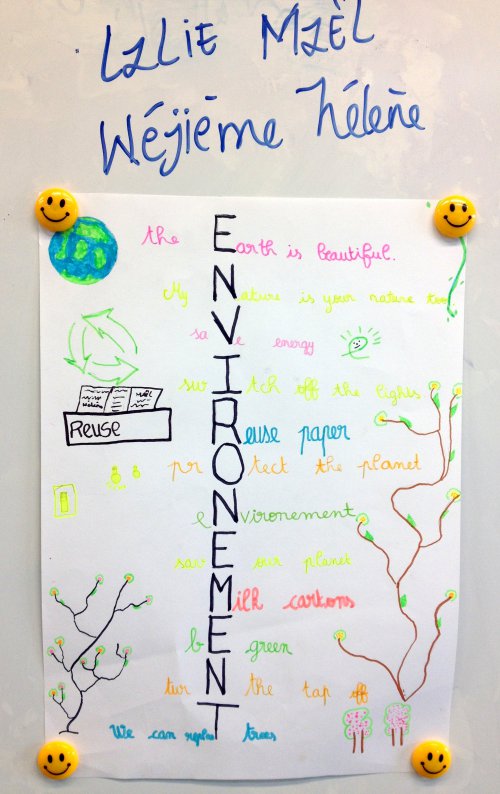 LaLiE MaËL
Wéjiéme Hélène
the Earth is beautiful.
My Nature is your nature too
saVe energy
swItch off the lights
Reuse
Reuse paper
prOtect the planet
eNvironement
savE our planet
Milk cartons
bE green
turN the tap off
We can replanT trees